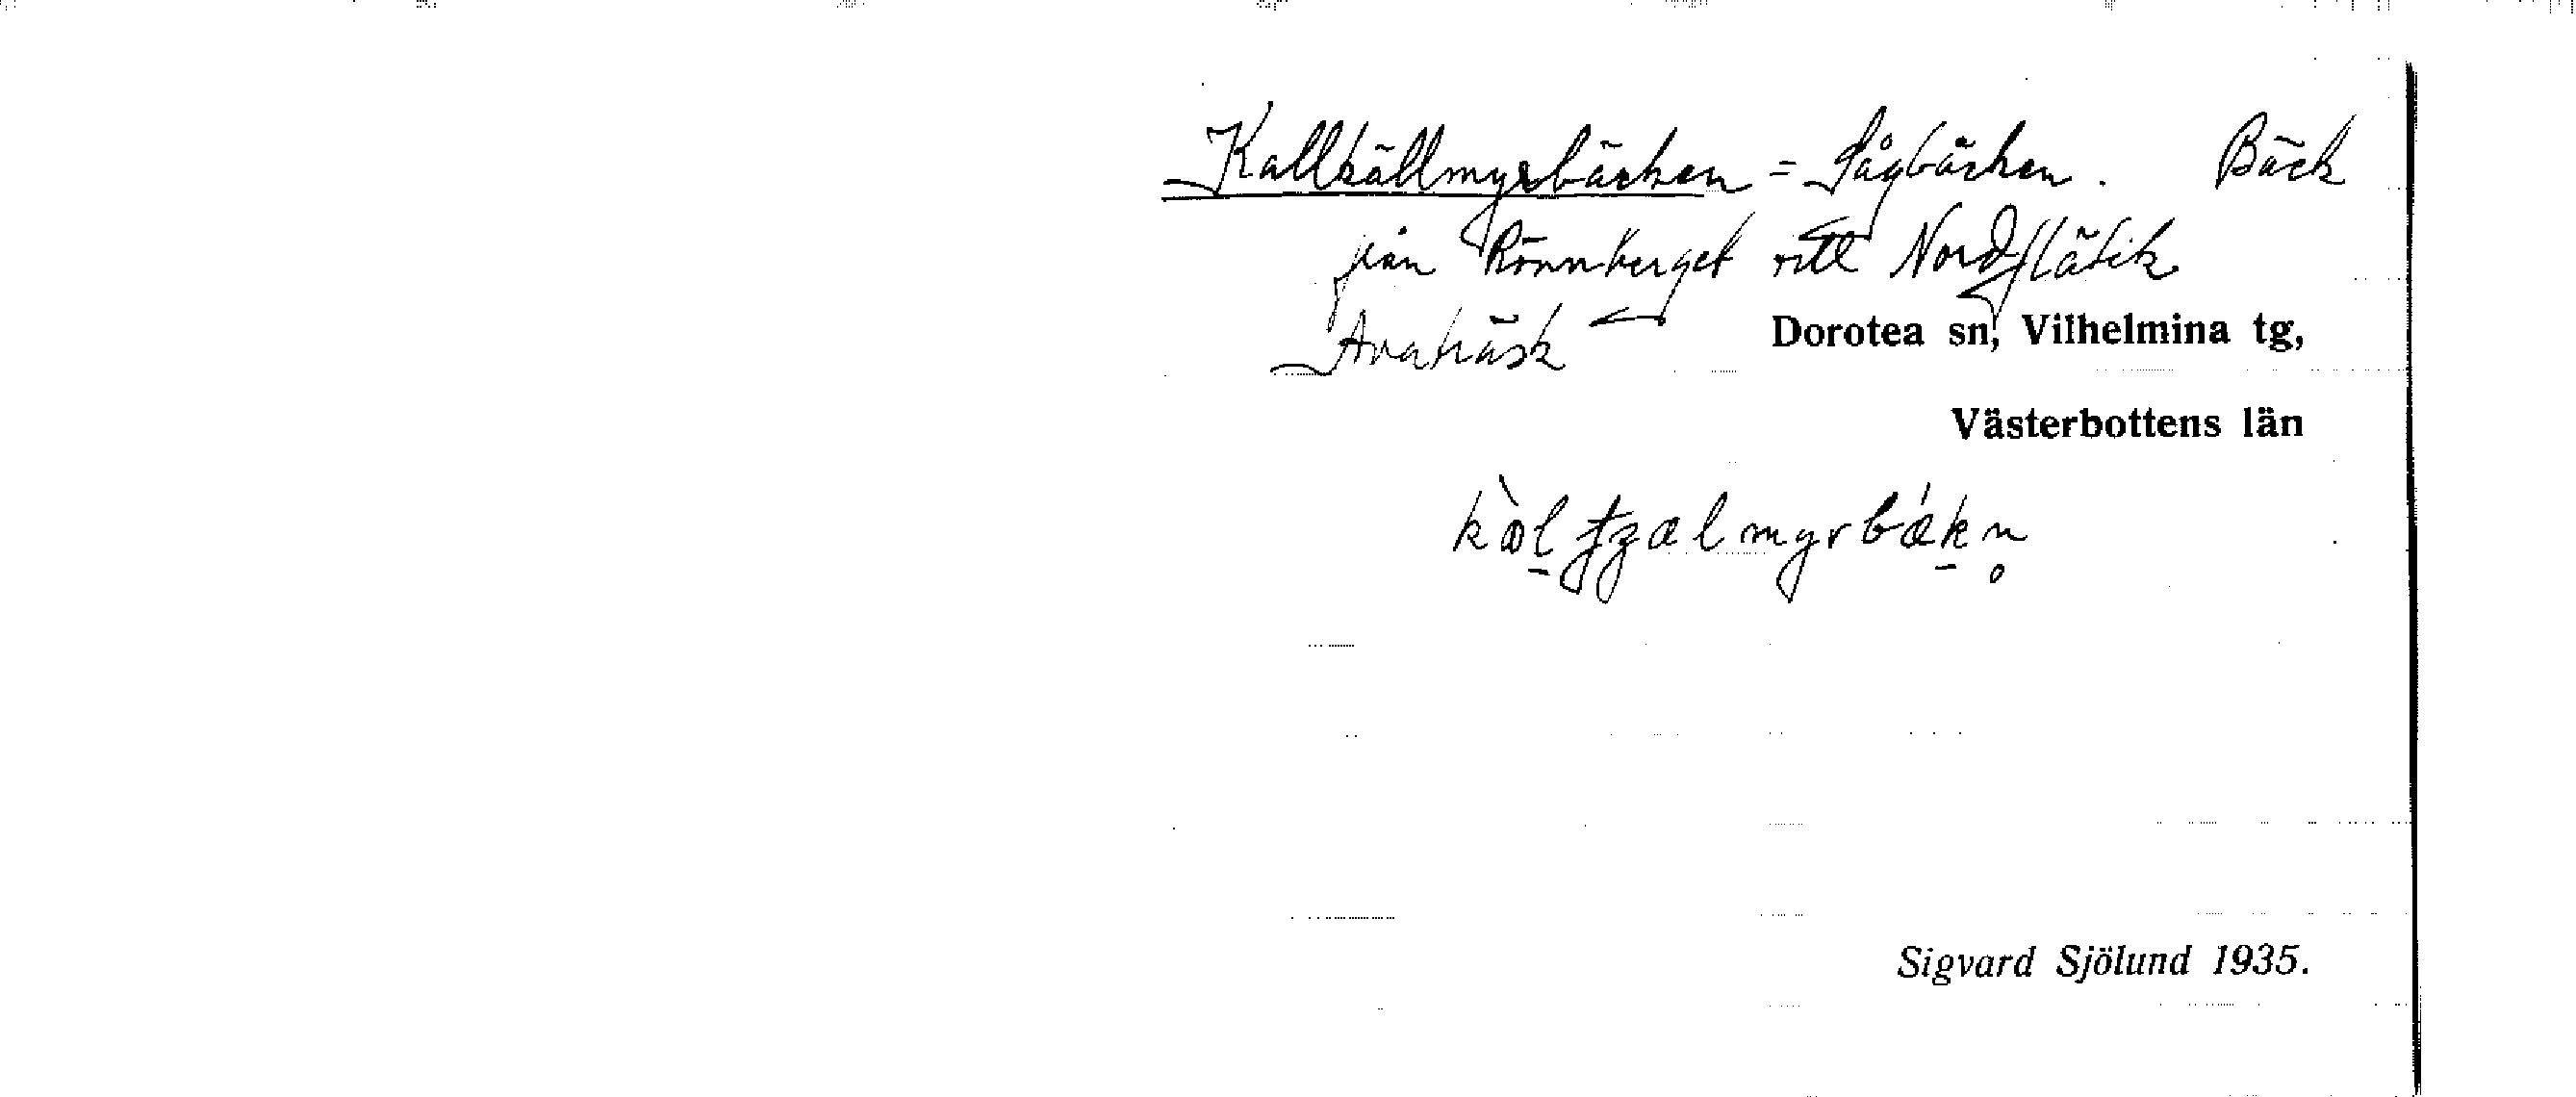 Kallkällmyrbäcken = Sågbäcken. Bäck
från Rönnberget till Nordflätik
Avaträsk Dorotea sn, Vilhelmina tg,
Västerbottens län
Sigvard Sjölund 1935.